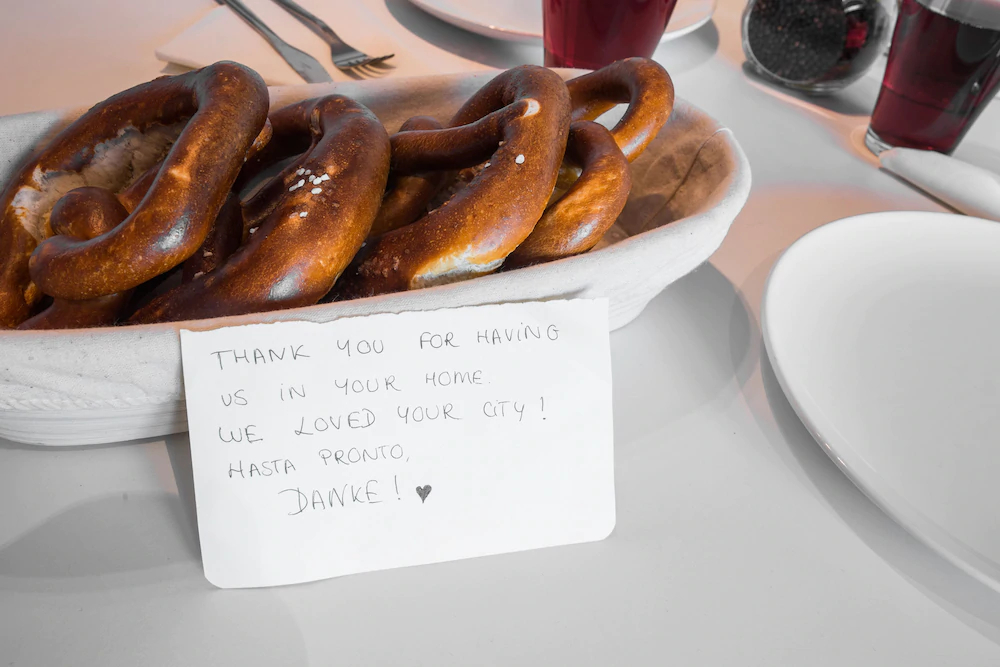 THANK YOU FOR HAVING
US IN YOUR HOME.
WE LOVED YOUR CITY!
HASTA PRONTO,
DANKE! ♥